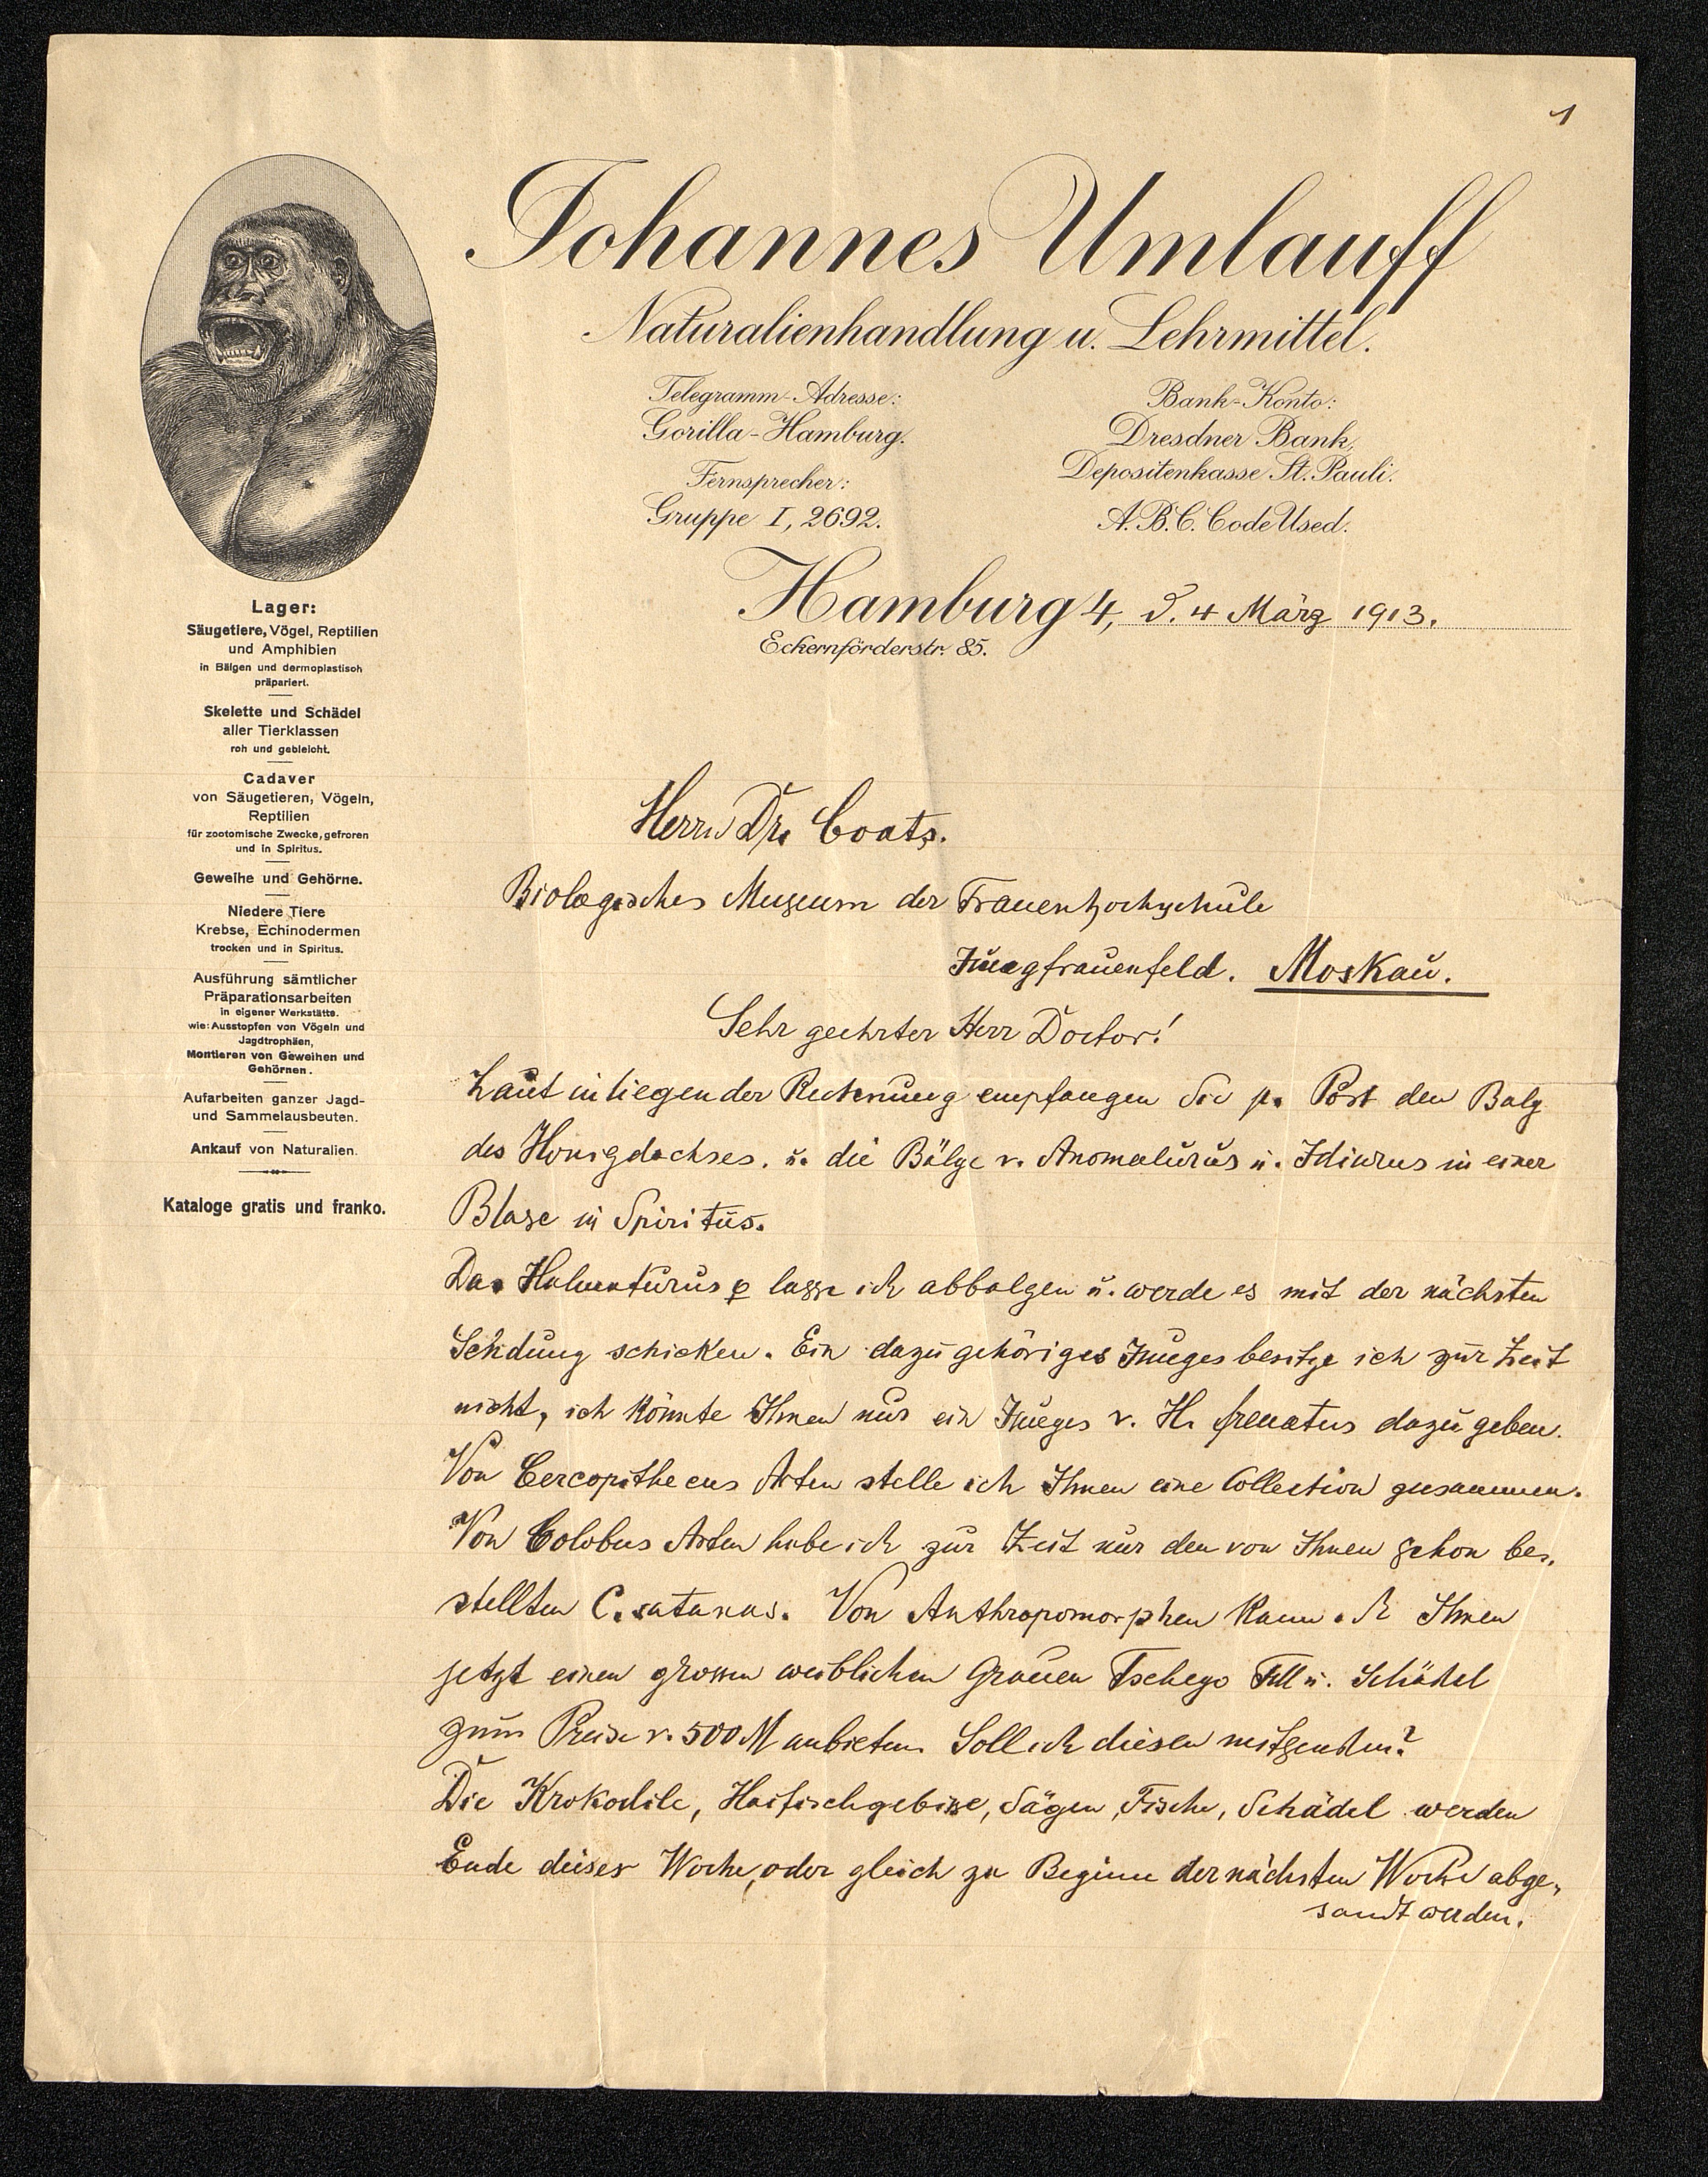 1
Johannes Umlauff
Naturalienhandlung u. Lehrmittel.
Telegramm-Adresse:
Gorilla-Hamburg.
Fernsprecher:
Gruppe I, 2692.
Bank-Konto:
Dresdner Bank,
Depositenkasse St. Pauli.
A.B.C. Code Used.
Hamburg 4, d. 4 März 1913.
Eckernförderstr. 85.
Lager:
Säugetiere, Vögel, Reptilien
und Amphibien
in Bälgen und dermoplastisch
präpariert.
Skelette und Schädel
aller Tierklassen
roh und gebleicht.
Cadaver
von Säugetieren, Vögeln,
Reptilien
für zootomische Zwecke, gefroren
und in Spiritus.
Geweihe und Gehörne.
Niedere Tiere
Krebse, Echinodermen
trocken und in Spiritus.
Ausführung sämtlicher
Präparationsarbeiten
in eigener Werkstätte.
wie: Ausstopfen von Vögeln und
Jagdtrophäen,
Montieren von Geweihen und
Gehörnen.
Aufarbeiten ganzer Jagd-
und Sammelausbeuten.
Ankauf von Naturalien.
Kataloge gratis und franko.
Herrn Dr. Coats.
Biologisches Museum der Frauenhochschule
Jungfrauenfeld. Moskau.
Sehr geehrter Herr Doctor!
Laut inliegender Rechnung empfangen Sie p. Post den Balg
des Honigdachses. u. die Bälge v. Anomalurus u. Idiurus in einer
Blase in Spiritus.
Das Halmaturus ♀ lasse ich abbalgen u. werde es mit der nächsten
Sendung schicken. Ein dazu gehöriges Junges besitze ich zur Zeit
nicht, ich könnte Ihnen nur ein Junges v. H. frenatus dazu geben.
Von Cercopithecus Arten stelle ich Ihnen eine Collection zusammen.
Von Colobus Arten habe ich zur Zeit nur den von Ihnen schon be-
stellten C. satanas. Von Anthropomorphen kann ich Ihnen
jetzt einen grossen weiblichen Grauen Tschego Fell u. Schädel
zum Preise v. 500 M anbieten. Soll ich diesen mitsenden?
Die Krokodile, Haifischgebisse, Sägen, Fische, Schädel werden
Ende dieser Woche, oder gleich zu Beginn der nächsten Woche abge-
sandt werden.